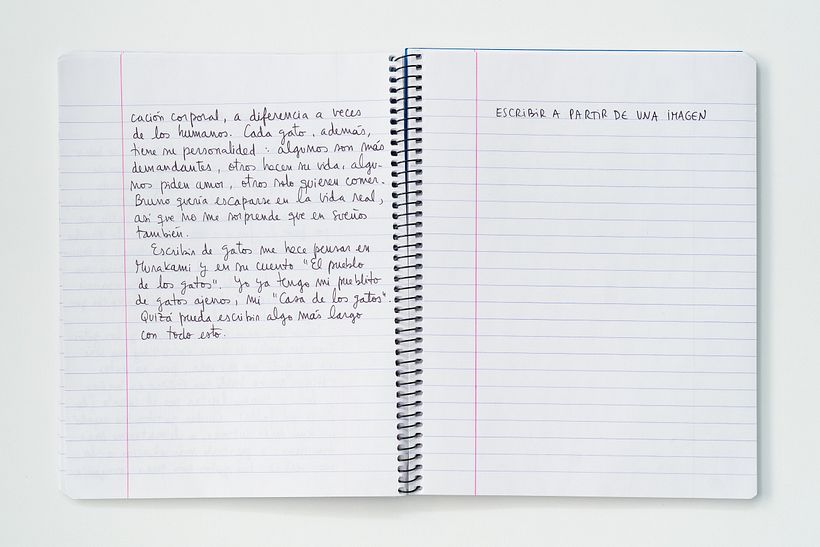 cación corporal, a diferencia a veces
de los humanos. Cada gato, además,
tiene su personalidad: algunos son más
demandantes, otros hacen su vida, algu-
nos piden amor, otros solo quieren comer.
Bruno quería escaparse en la vida real,
así que no me sorprende que en sueños
también.
Escribir de gatos me hace pensar en
Murakami y en su cuento "El pueblo
de los gatos". Yo ya tengo mi pueblito
de gatos ajenos, mi "Casa de los gatos".
Quizá pueda escribir algo más largo
con todo esto.
ESCRIBIR A PARTIR DE UNA IMAGEN